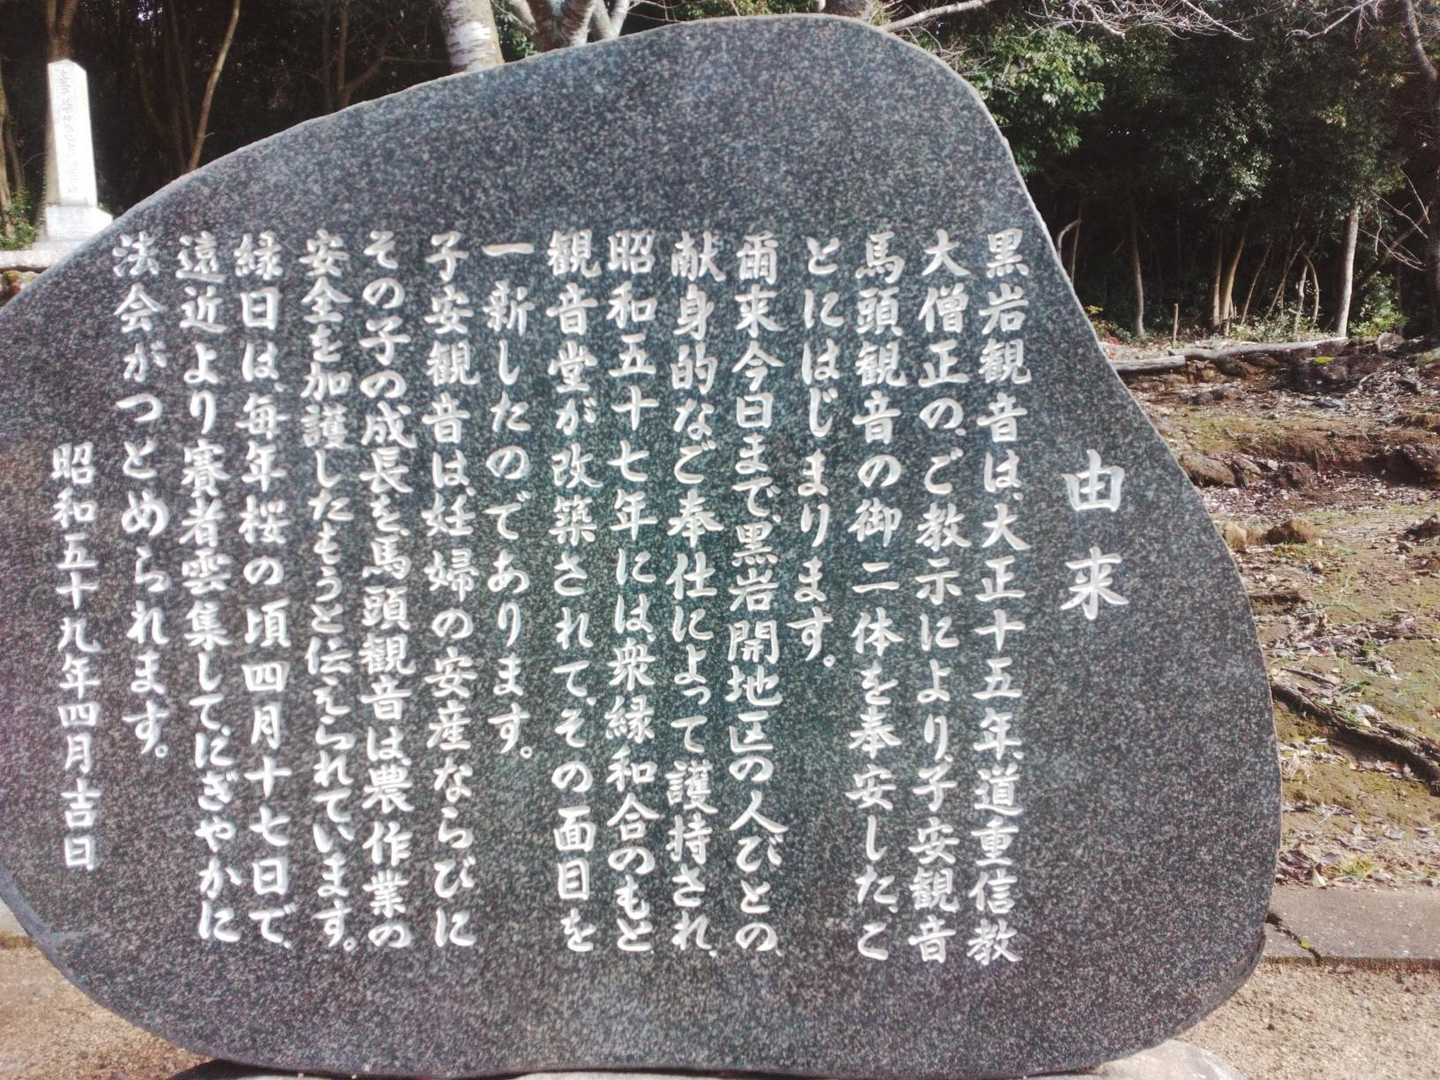 由来
黒岩観音は、大正十五年道重信教
大僧正の、ご教示により、子安観音
馬頭観音の御二体を奉安した、こ
とにはじまります。
爾来今日まで、黒岩開地区の人びとの、
献身的なご奉仕によって護持され、
昭和五十七年には、衆縁和合のもと
観音堂が改築されて、その面目を
一新したのであります。
子安観音は、妊婦の安産ならびに
その子の成長を、馬頭観音は農作業の
安全を加護したもうと伝えられています。
縁日は、毎年桜の頃四月十七日で、
遠近より賽者雲集して、にぎやかに
法会がつとめられます。
昭和五十九年四月吉日